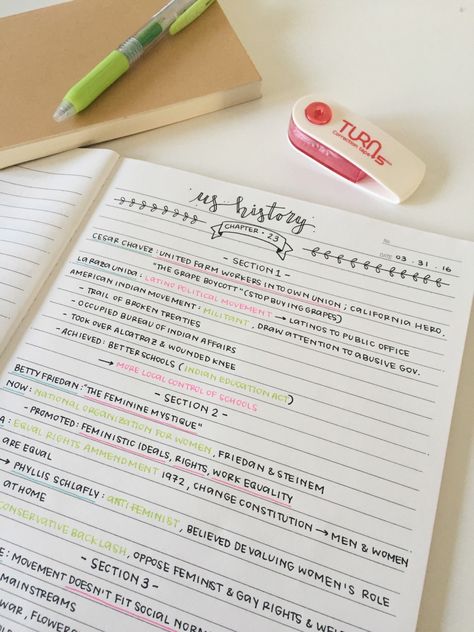 TURN 5
Correction Tape
us history
CHAPTER • 23
NO.
DATE 03 . 31 . 16
- SECTION 1 -
CESAR CHAVEZ : UNITED FARM WORKERS INTO OWN UNION ; CALIFORNIA HERO.
"THE GRAPE BOYCOTT" (STOP BUYING GRAPES)
LA RAZA UNIDA : LATINO POLITICAL MOVEMENT → LATINOS TO PUBLIC OFFICE
AMERICAN INDIAN MOVEMENT : MILITANT , DRAW ATTENTION TO ABUSIVE GOV.
- TRAIL OF BROKEN TREATIES
- OCCUPIED BUREAU OF INDIAN AFFAIRS
- TOOK OVER ALCATRAZ & WOUNDED KNEE
- ACHIEVED : BETTER SCHOOLS (INDIAN EDUCATION ACT)
→ MORE LOCAL CONTROL OF SCHOOLS
- SECTION 2 -
BETTY FRIEDAN : "THE FEMININE MYSTIQUE"
NOW : NATIONAL ORGANIZATION FOR WOMEN, FRIEDAN & STEINEM
- PROMOTED : FEMINISTIC IDEALS, RIGHTS, WORK EQUALITY
A : EQUAL RIGHTS AMMENDMENT 1972, CHANGE CONSTITUTION → MEN & WOMEN
ARE EQUAL
→ PHYLLIS SCHLAFLY : ANTIFEMINIST, BELIEVED DEVALUING WOMEN'S ROLE
AT HOME
CONSERVATIVE BACKLASH, OPPOSE FEMINIST & GAY RIGHTS &
- SECTION 3 -
E : MOVEMENT DOESN'T FIT SOCIAL
MAINSTREAMS
WAR, FLOWERS